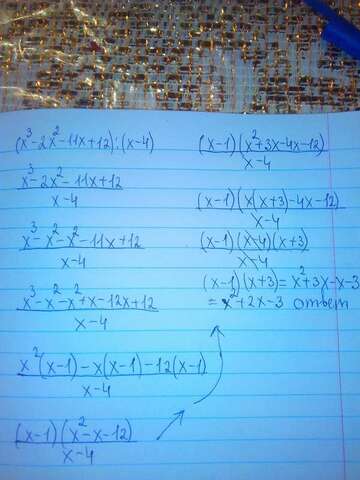 (x³-2x²-11x+12):(x-4)
x³-2x²-11x+12
x-4
x³-x²-x²-11x+12
x-4
x³-x²-x²+x-12x+12
x-4
x²(x-1)-x(x-1)-12(x-1)
x-4
(x-1)(x²-x-12)
x-4
(x-1)(x²+3x-4x-12)
x-4
(x-1)(x(x+3)-4x-12)
x-4
(x-1)(x-4)(x+3)
x-4
(x-1)(x+3)=x²+3x-x-3
=x²+2x-3 ответ